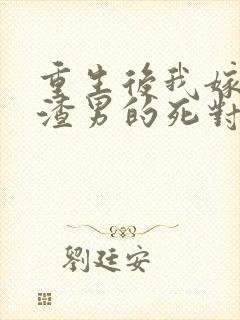 重生後我嫁
渣男的死對
劉廷安